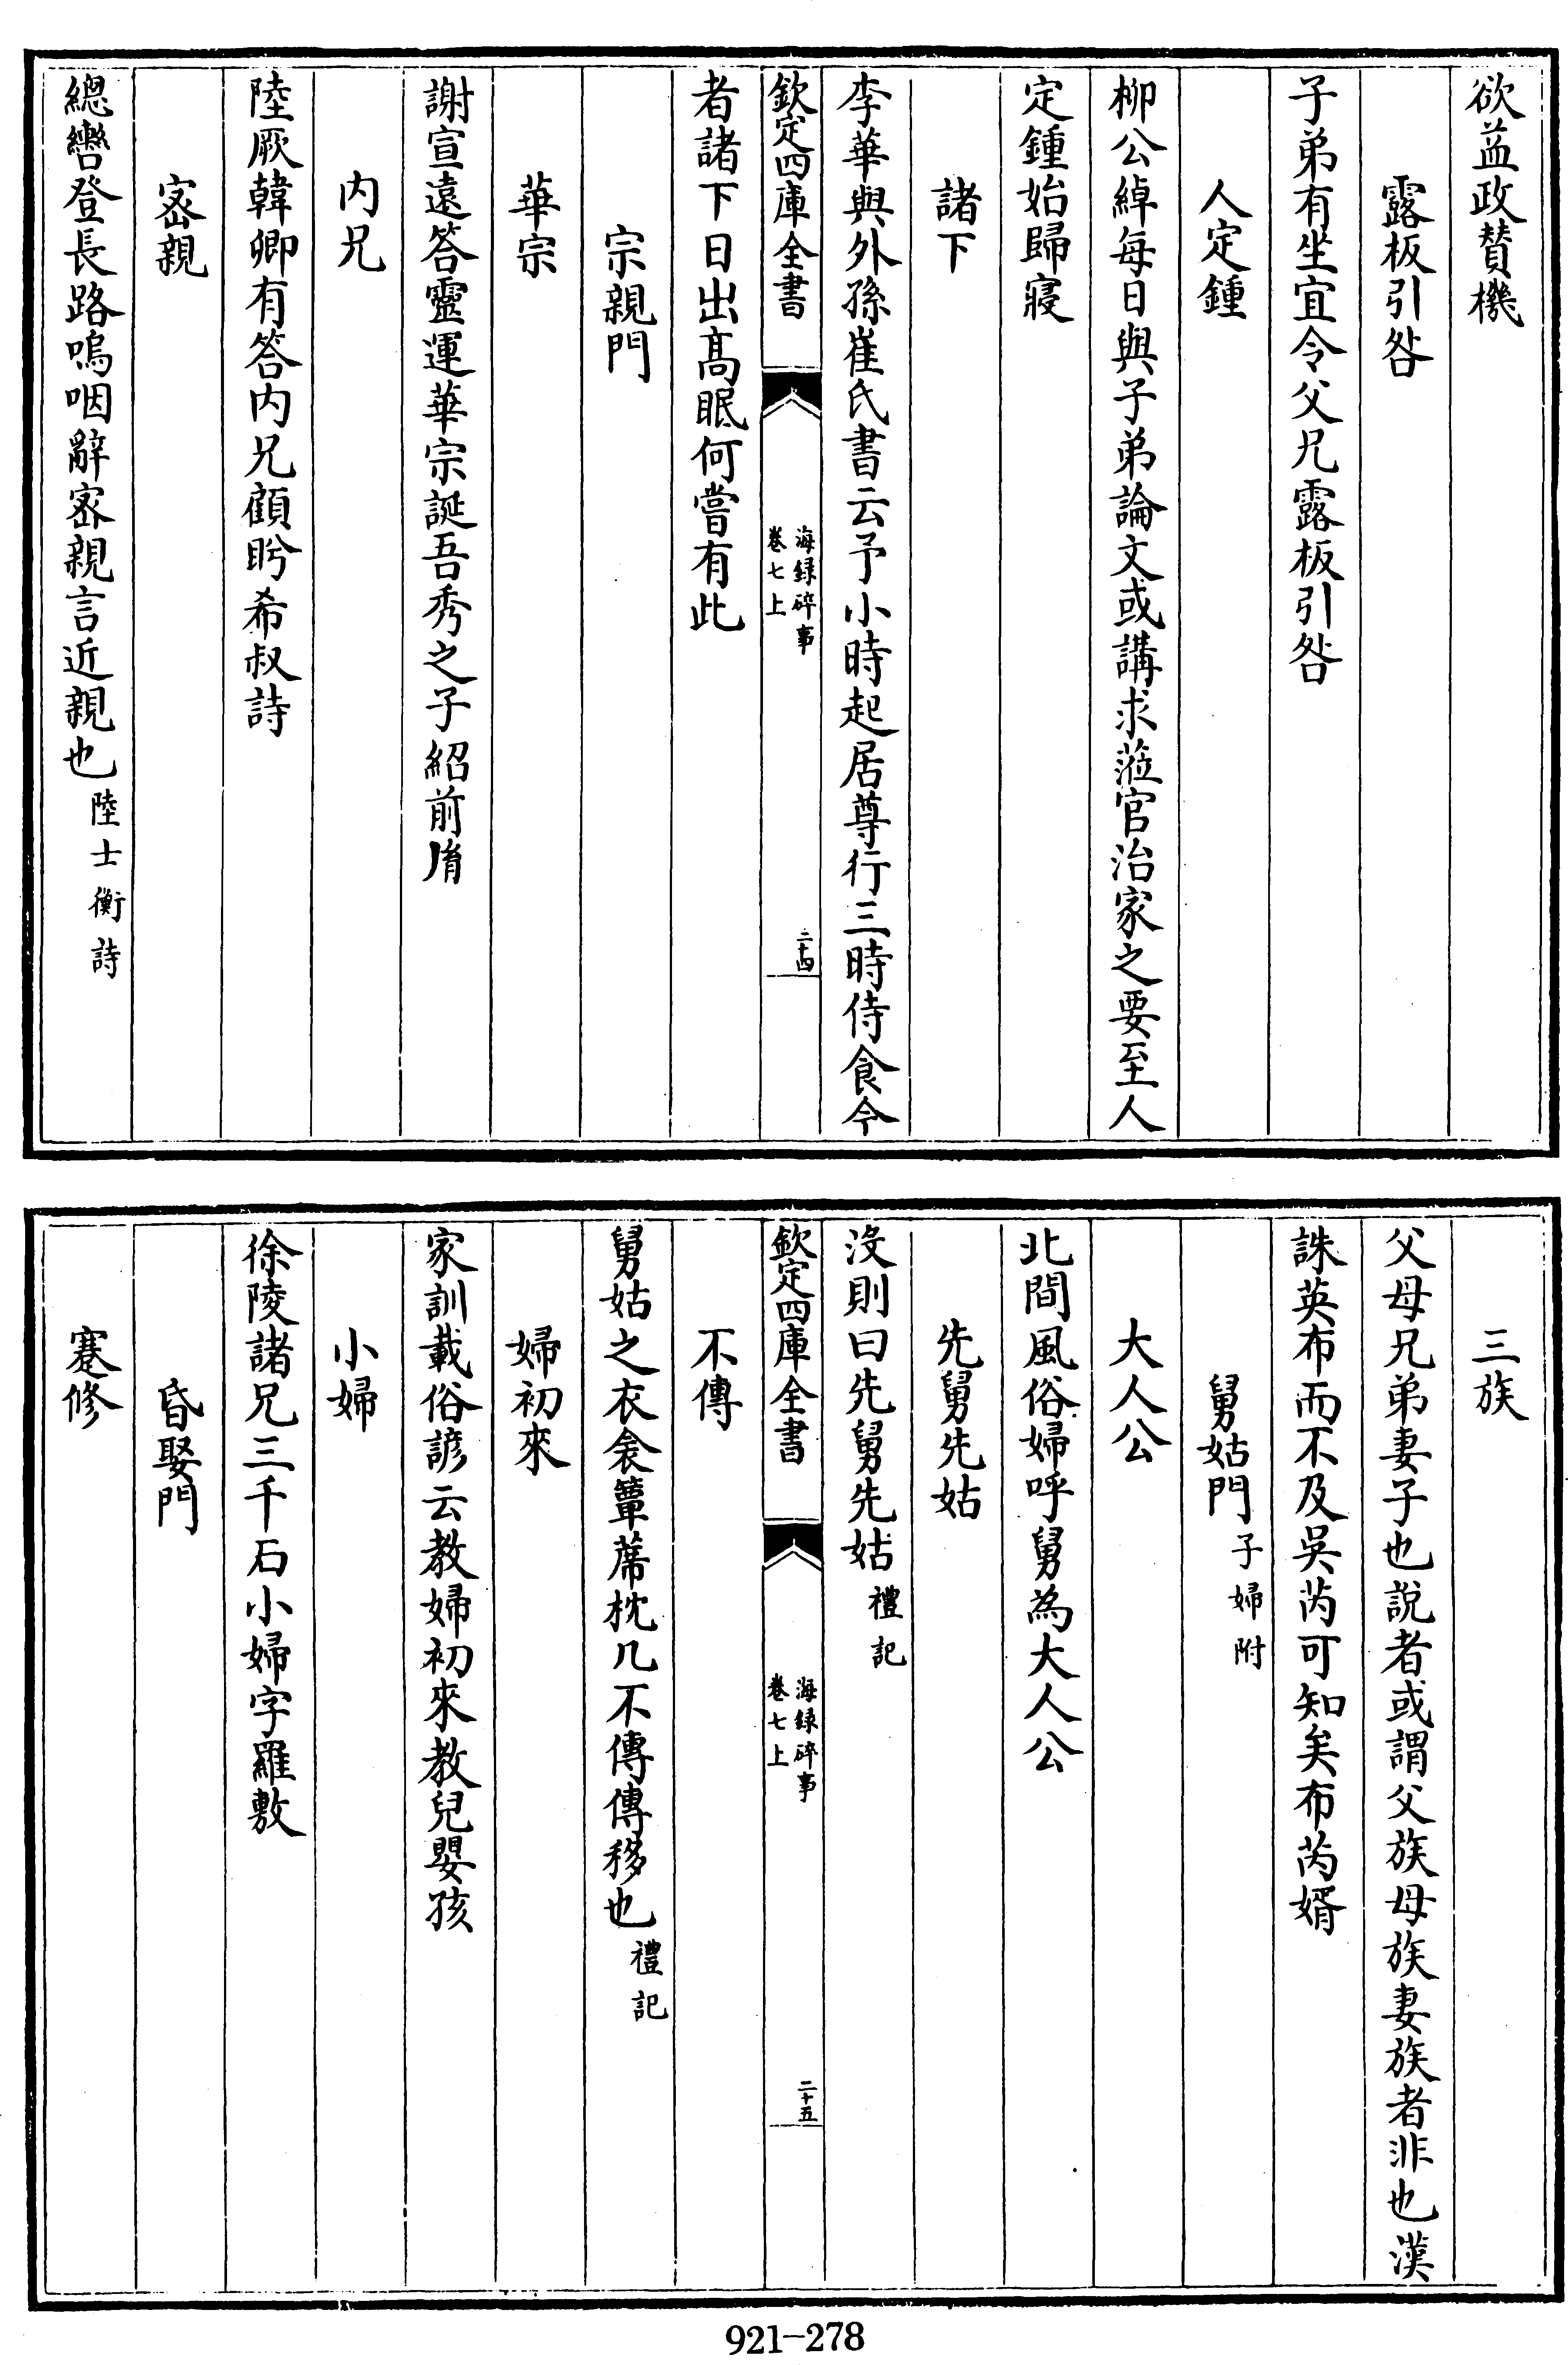 欲益政賛機
露板引咎
子弟有坐宜令父兄露板引咎
人定鍾
柳公綽每日與子弟論文或講求蒞官治家之要至人
定鍾始歸寢
諸下
李華與外孫崔氏書云予小時起居尊行三時侍食今
欽定四庫全書
海録碎事
卷七上
二十四
者諸下日出髙眠何嘗有此
宗親門
華宗
謝宣遠答靈運華宗誕吾秀之子紹前𦙍
内兄
陸厥韓卿有答内兄顧盻希叔詩
宻親
總轡登長路嗚咽辭宻親言近親也陸士衡詩
三族
父母兄弟妻子也說者或謂父族母族妻族者非也漢
誅英布而不及吳芮可知矣布芮婿
舅姑門子婦附
大人公
北間風俗婦呼舅為大人公
先舅先姑
沒則曰先舅先姑禮記
欽定四庫全書
海録碎事
卷七上
二十五
不傳
舅姑之衣衾簟蓆枕几不傳傳移也禮記
婦初來
家訓載俗諺云教婦初來教兒嬰孩
小婦
徐陵諸兄三千石小婦字羅敷
昏娶門
蹇修
921-278